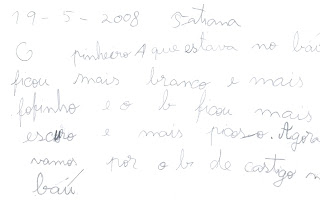 19-5-2008 Tatiana
O pinheiro A que estava no baú
ficou mais branco e mais
fofinho e o b ficou mais
escuro e mais Agora
vamos por o b de castigo n
baú